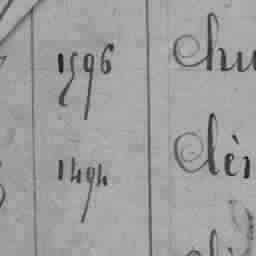 1596 Chu
1494 Clèr